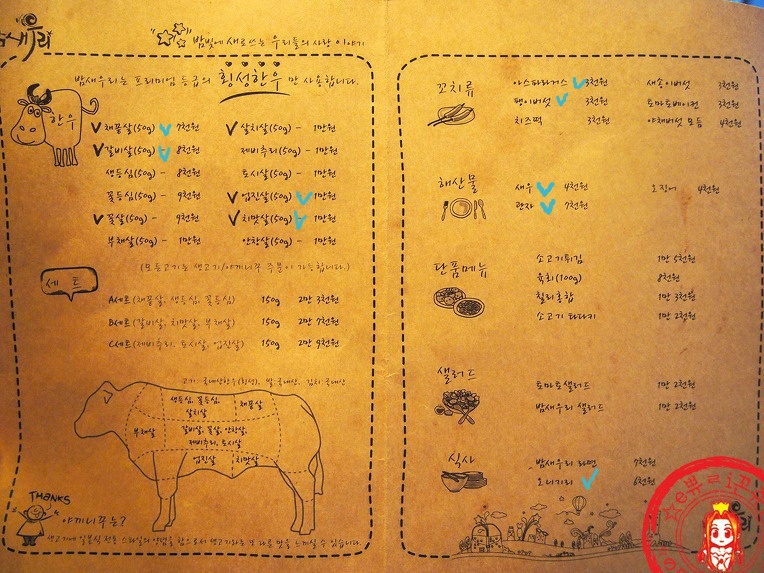 밤새우리
밤빛에 새로쓰는 우리들의 사랑 이야기
밤새우리는 프리미엄 등급의 횡성한우 만 사용합니다.
한우
채끝살(50g) 7천원 살치살(50g) - 1만원
갈비살(50g) 8천원 제비추리(50g) - 1만원
생등심(50g) - 8천원 토시살(50g) - 1만원
꽃등심(50g) - 9천원 업진살(50g) 1만원
꽃살(50g) - 9천원 치맛살(50g) 1만원
부채살(50g) - 1만원 안창살(50g) - 1만원
(모든고기는 생고기/야끼니꾸 주문이 가능합니다.)
세트
A세트(채끝살, 생등심, 꽃등심) 150g 2만 3천원
B세트(갈비살, 치맛살, 부채살) 150g 2만 7천원
C세트(제비추리, 토시살, 업진살) 150g 2만 9천원
고기:국내산한우(횡성), 쌀:국내산, 김치:국내산
생등심, 꽃등심,
살치살
채끝살
부채살
갈비살, 꽃살, 안창살,
제비추리, 토시살
업진살
치맛살
THANKS
야끼니꾸는?
생고기에 일본식 전통 스타일의 양념을 함으로써 생고기와는 또 다른 맛을 느끼실 수 있습니다.
꼬치류
아스파라거스 3천원 새송이버섯 3천원
팽이버섯 3천원 토마토베이컨 3천원
치즈떡 3천원 야채버섯 모듬 4천원
해산물
새우 4천원 오징어 4천원
관자 7천원
단품메뉴
소고기튀김 1만 5천원
육회(100g) 8천원
칠리홍합 1만 3천원
소고기 타다키 1만 2천원
샐러드
토마토샐러드 1만 2천원
밤새우리 샐러드 1만 2천원
식사
밤새우리 라면 7천원
오니기리 6천원